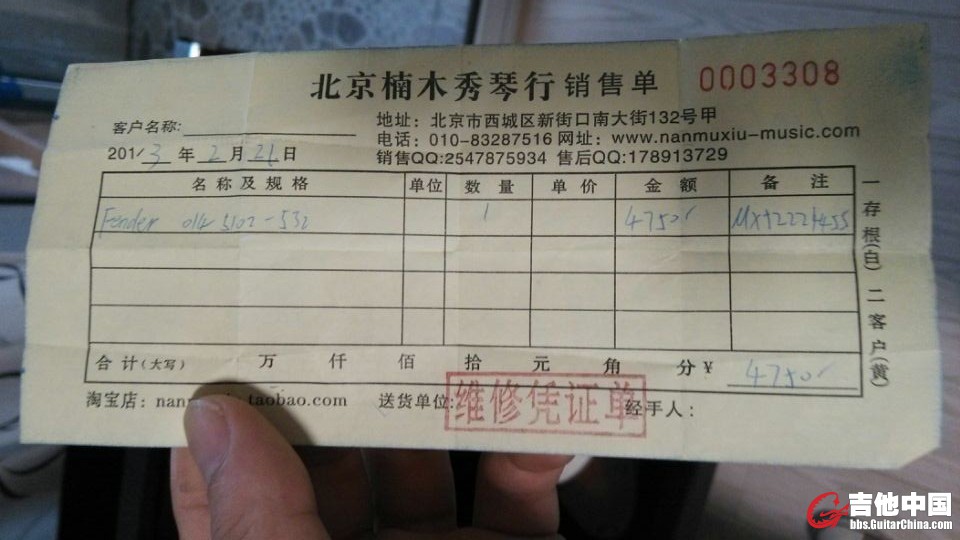 北京楠木秀琴行销售单 0003308
地址：北京市西城区新街口南大街132号甲
客户名称：
电话：010-83287516 网址：www.nanmuxiu-music.com
2013年2月21日
销售QQ:2547875934 售后QQ:178913729
名称及规格 单位 数量 单价 金额 备注
Fender 014 5102-532 1 4750
合计(大写) 万 仟 佰 拾 元 角 分 ¥ 4750
淘宝店： .taobao.com 送货单位： 经手人：
维修凭证单
一存根(白) 二客户(黄)
吉他中国
bbs.GuitarChina.com